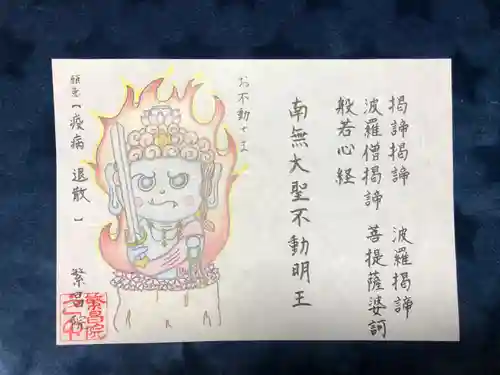 羯諦羯諦 波羅羯諦
波羅僧羯諦 菩提薩婆訶
般若心経
南無大聖不動明王
お不動さま
願意【疫病 退散】 繁昌院
繁昌院